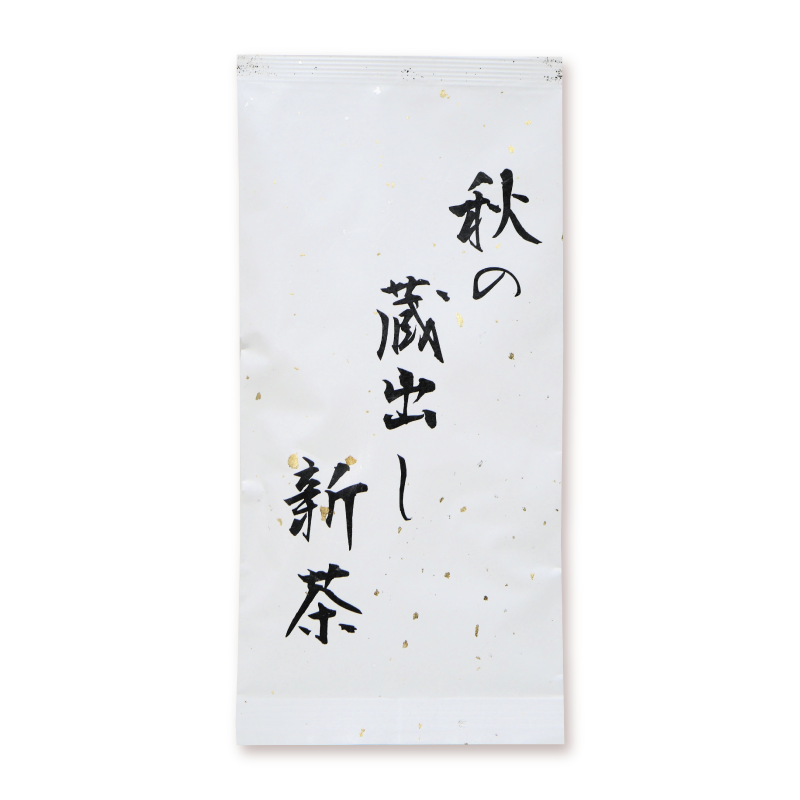 秋の
蔵出し
新茶